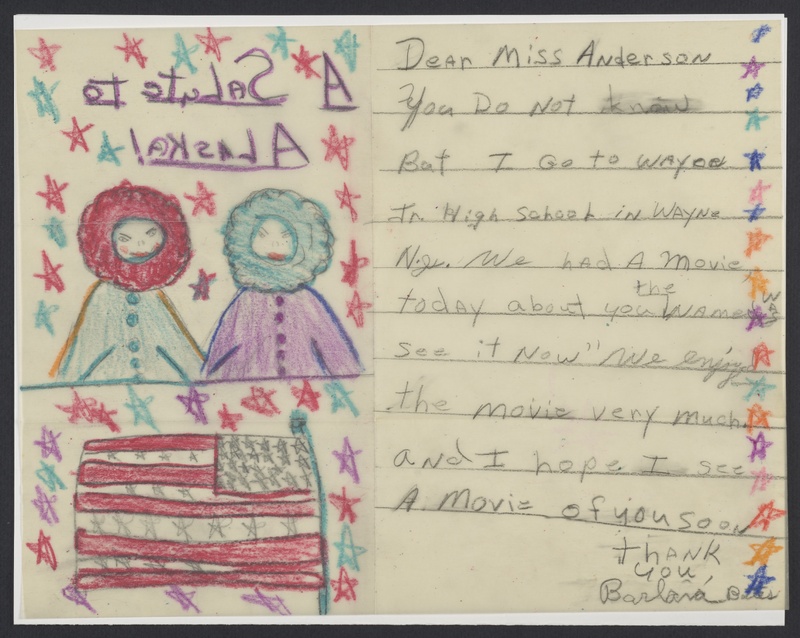 A Salute to
Alaska!
Dear Miss Anderson
You Do Not know
But I Go to WAyne
Jr. High School in WAYNe
N.J. We had A Movie
today about you the NAme WAS
See it Now" We enjoy
the movie very much.
and I hope I see
A Movie of you soon
thANK
you,
Barbara